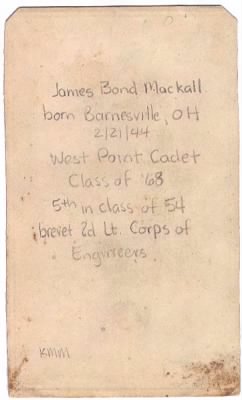 James Bond Mackall
born Barnesville, OH
2/21/44
West Point Cadet
Class of '68
5th in class of 54
brevet 2d Lt. Corps of
Engineers
KMM